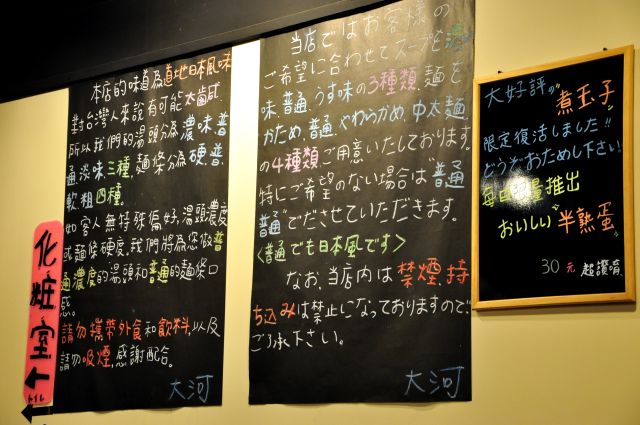 本店的味道為道地日本風味
對台灣人來說有可能太鹹
所以我們的湯頭分為濃味普
通淡味三種,麵條分為硬.普.
軟.粗四種.
如客人無特殊偏好,湯頭濃度
或麵條硬度,我們將為您做普
通濃度的湯頭和普通的麵條口
感。
請勿攜帶外食和飲料,以及
請勿吸煙,感謝配合。
大河
当店ではお客様の
ご希望に合わせてスープを濃
味、普通、うす味の3種類、麺を
かため、普通、やわらかめ、中太麺
の4種類ご用意いたしております。
特にご希望のない場合は"普通
普通"でださせていただきます。
<普通でも日本風です>
なお、当店内は禁煙、持
ち込みは禁止になっておりますので、
ご了承下さい。
大河
大好評の煮玉子
限定復活しました!!
どうぞおためし下さい!
毎日限量推出
おいしい半熟蛋
30元 超讚唷
化粧室
トイレ